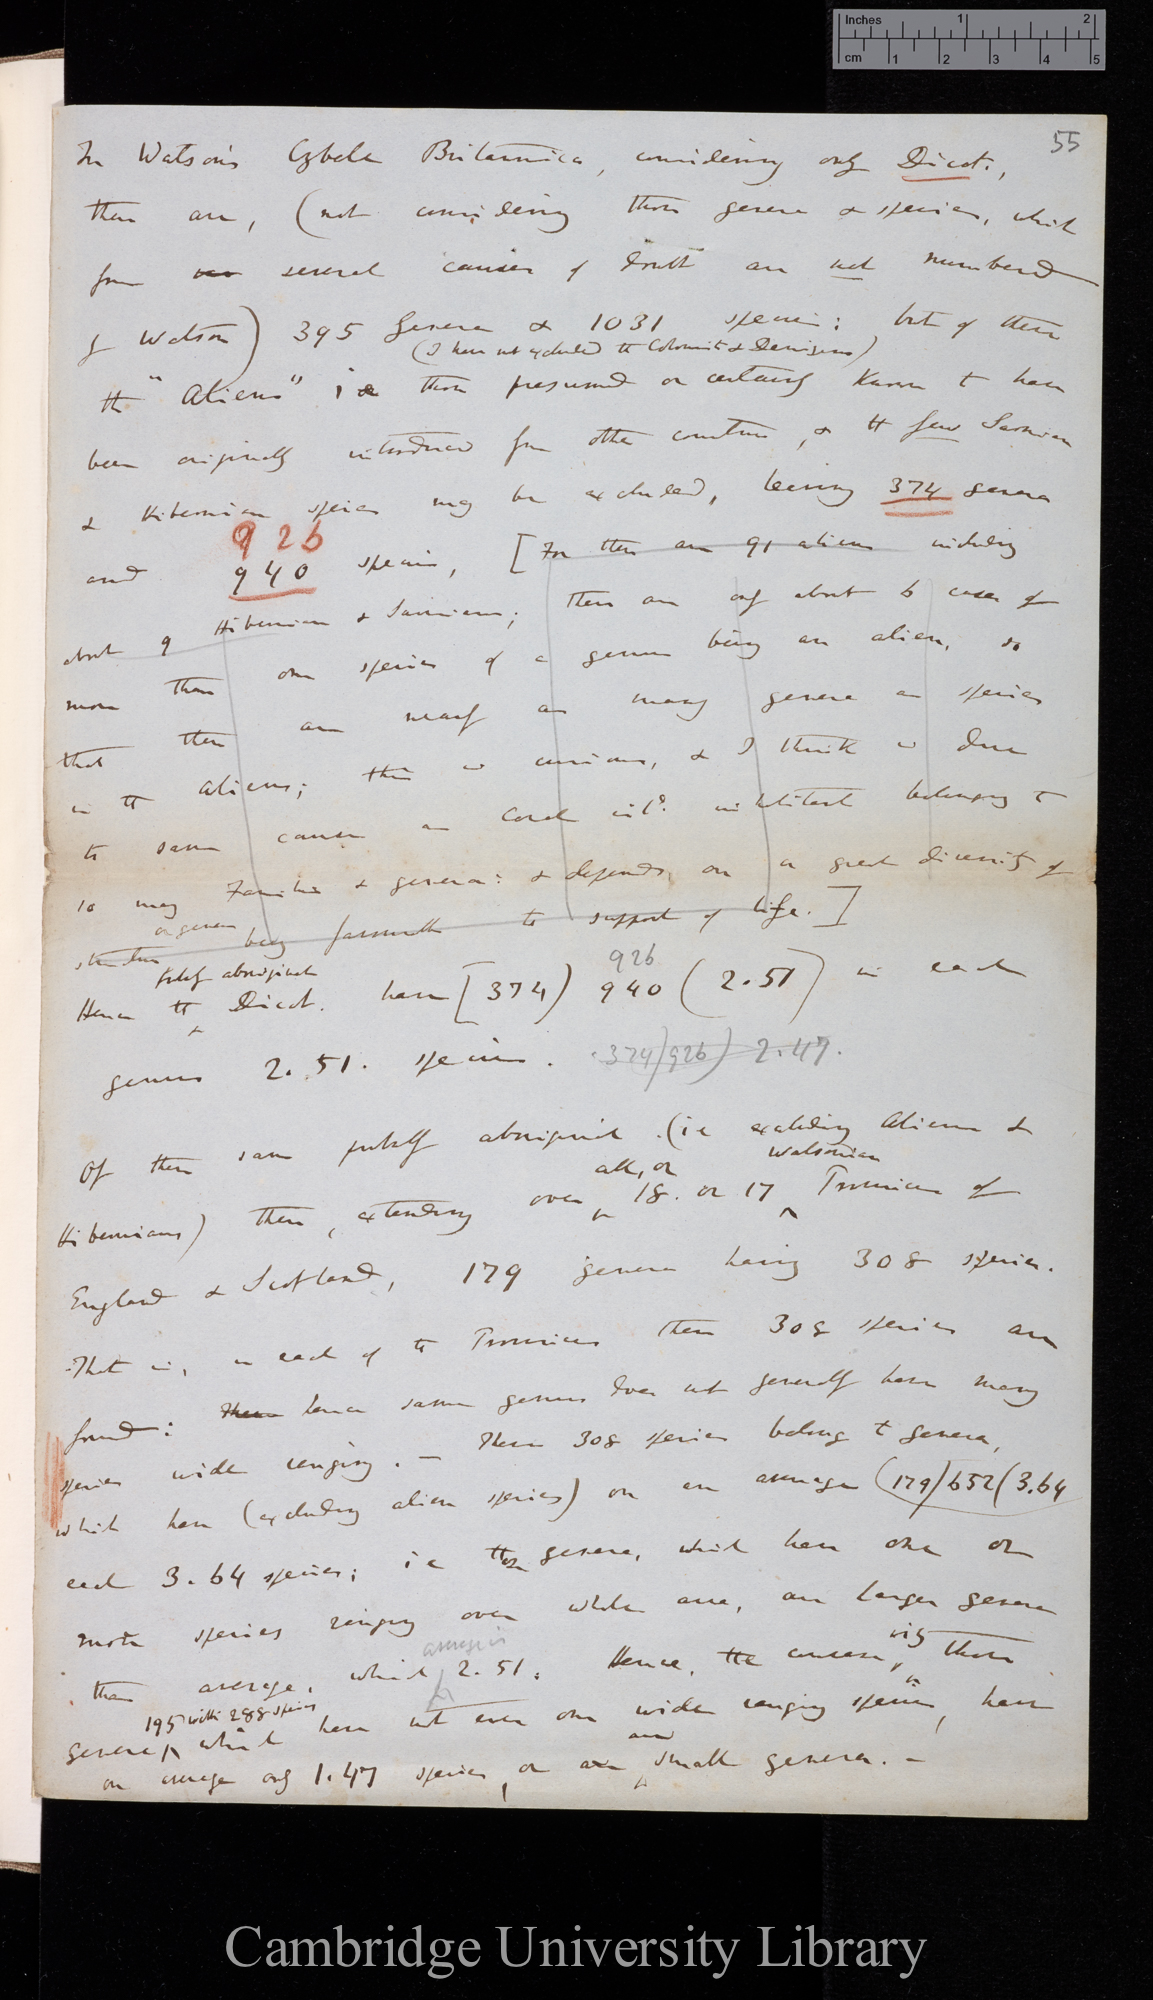 Inches 1 2
cm 1 2 3 4 5
55
In Watson's Cybele Britannica, considering only Dicot.,
there are, (not considering those genera & species, which
from several causes of doubt are not numbered
by Watson) 395 Genera & 1031 species: but of these
(I have not excluded the Colonists & Denizens)
the "Aliens" ie those presumed or certainly known to have
been originally introduced from other countries, & the few Sarnian
& Hibernian species may be excluded, leaving 374 genera
926
and 940 species, [For there are 91 aliens including
about 9 Hibernian & Sarnians; there are only about 6 cases of
more than one species of a genus being an alien, so
that there are nearly as many genera as species
in the aliens; this is curious, & I think is due
to same cause as Coral isld. inhabitants belonging to
so many Families & genera: & depends on a great diversity of
or genera
structure being favourable to support of life.]
probably aboriginal 926
Hence the Dicot. have [374) 940 (2.51) in each
genus 2.51. species. 374)926) 2.47.
Of these same probably aboriginal (ie excluding Aliens &
all, or Watsonian
Hibernians) there, extending over 18. or 17 Provinces of
England & Scotland, 179 genera having 308 species.
That is, in each of the Provinces these 308 species are
found: hence same genus does not generally have many
species wide ranging. — These 308 species belong to genera,
which have (excluding alien species) on an average (179)652(3.64
each 3.64 species; ie those genera, which have one or
more species ranging over whole area, are larger genera
average is
than average, which 2.51. Hence, the converse, viz those
195 with 288 species
genera, which have not even one wide ranging species, have
are
on average only 1.47 species, or small genera. —
Cambridge University Library